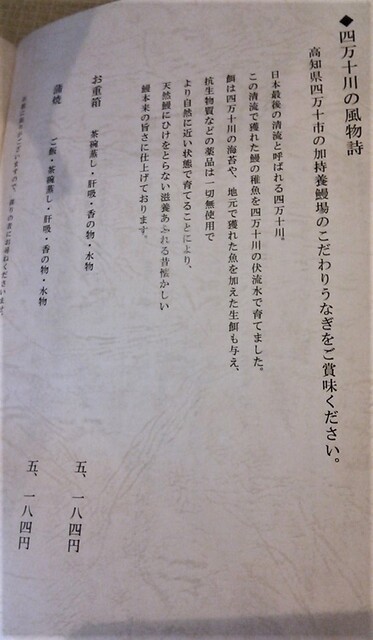 ◆四万十川の風物詩
高知県四万十市の加持養鰻場のこだわりうなぎをご賞味ください。
日本最後の清流と呼ばれる四万十川。
この清流で獲れた鰻の稚魚を四万十川の伏流水で育てました。
餌は四万十川の海苔や、地元で獲れた魚を加えた生餌も与え、
抗生物質などの薬品は一切無使用で
より自然に近い状態で育てることにより、
天然鰻にひけをとらない滋養あふれる昔懐かしい
鰻本来の旨さに仕上げております。
お重箱 茶碗蒸し・肝吸・香の物・水物 五、一八四円
蒲焼 ご飯・茶碗蒸し・肝吸・香の物・水物 五、一八四円